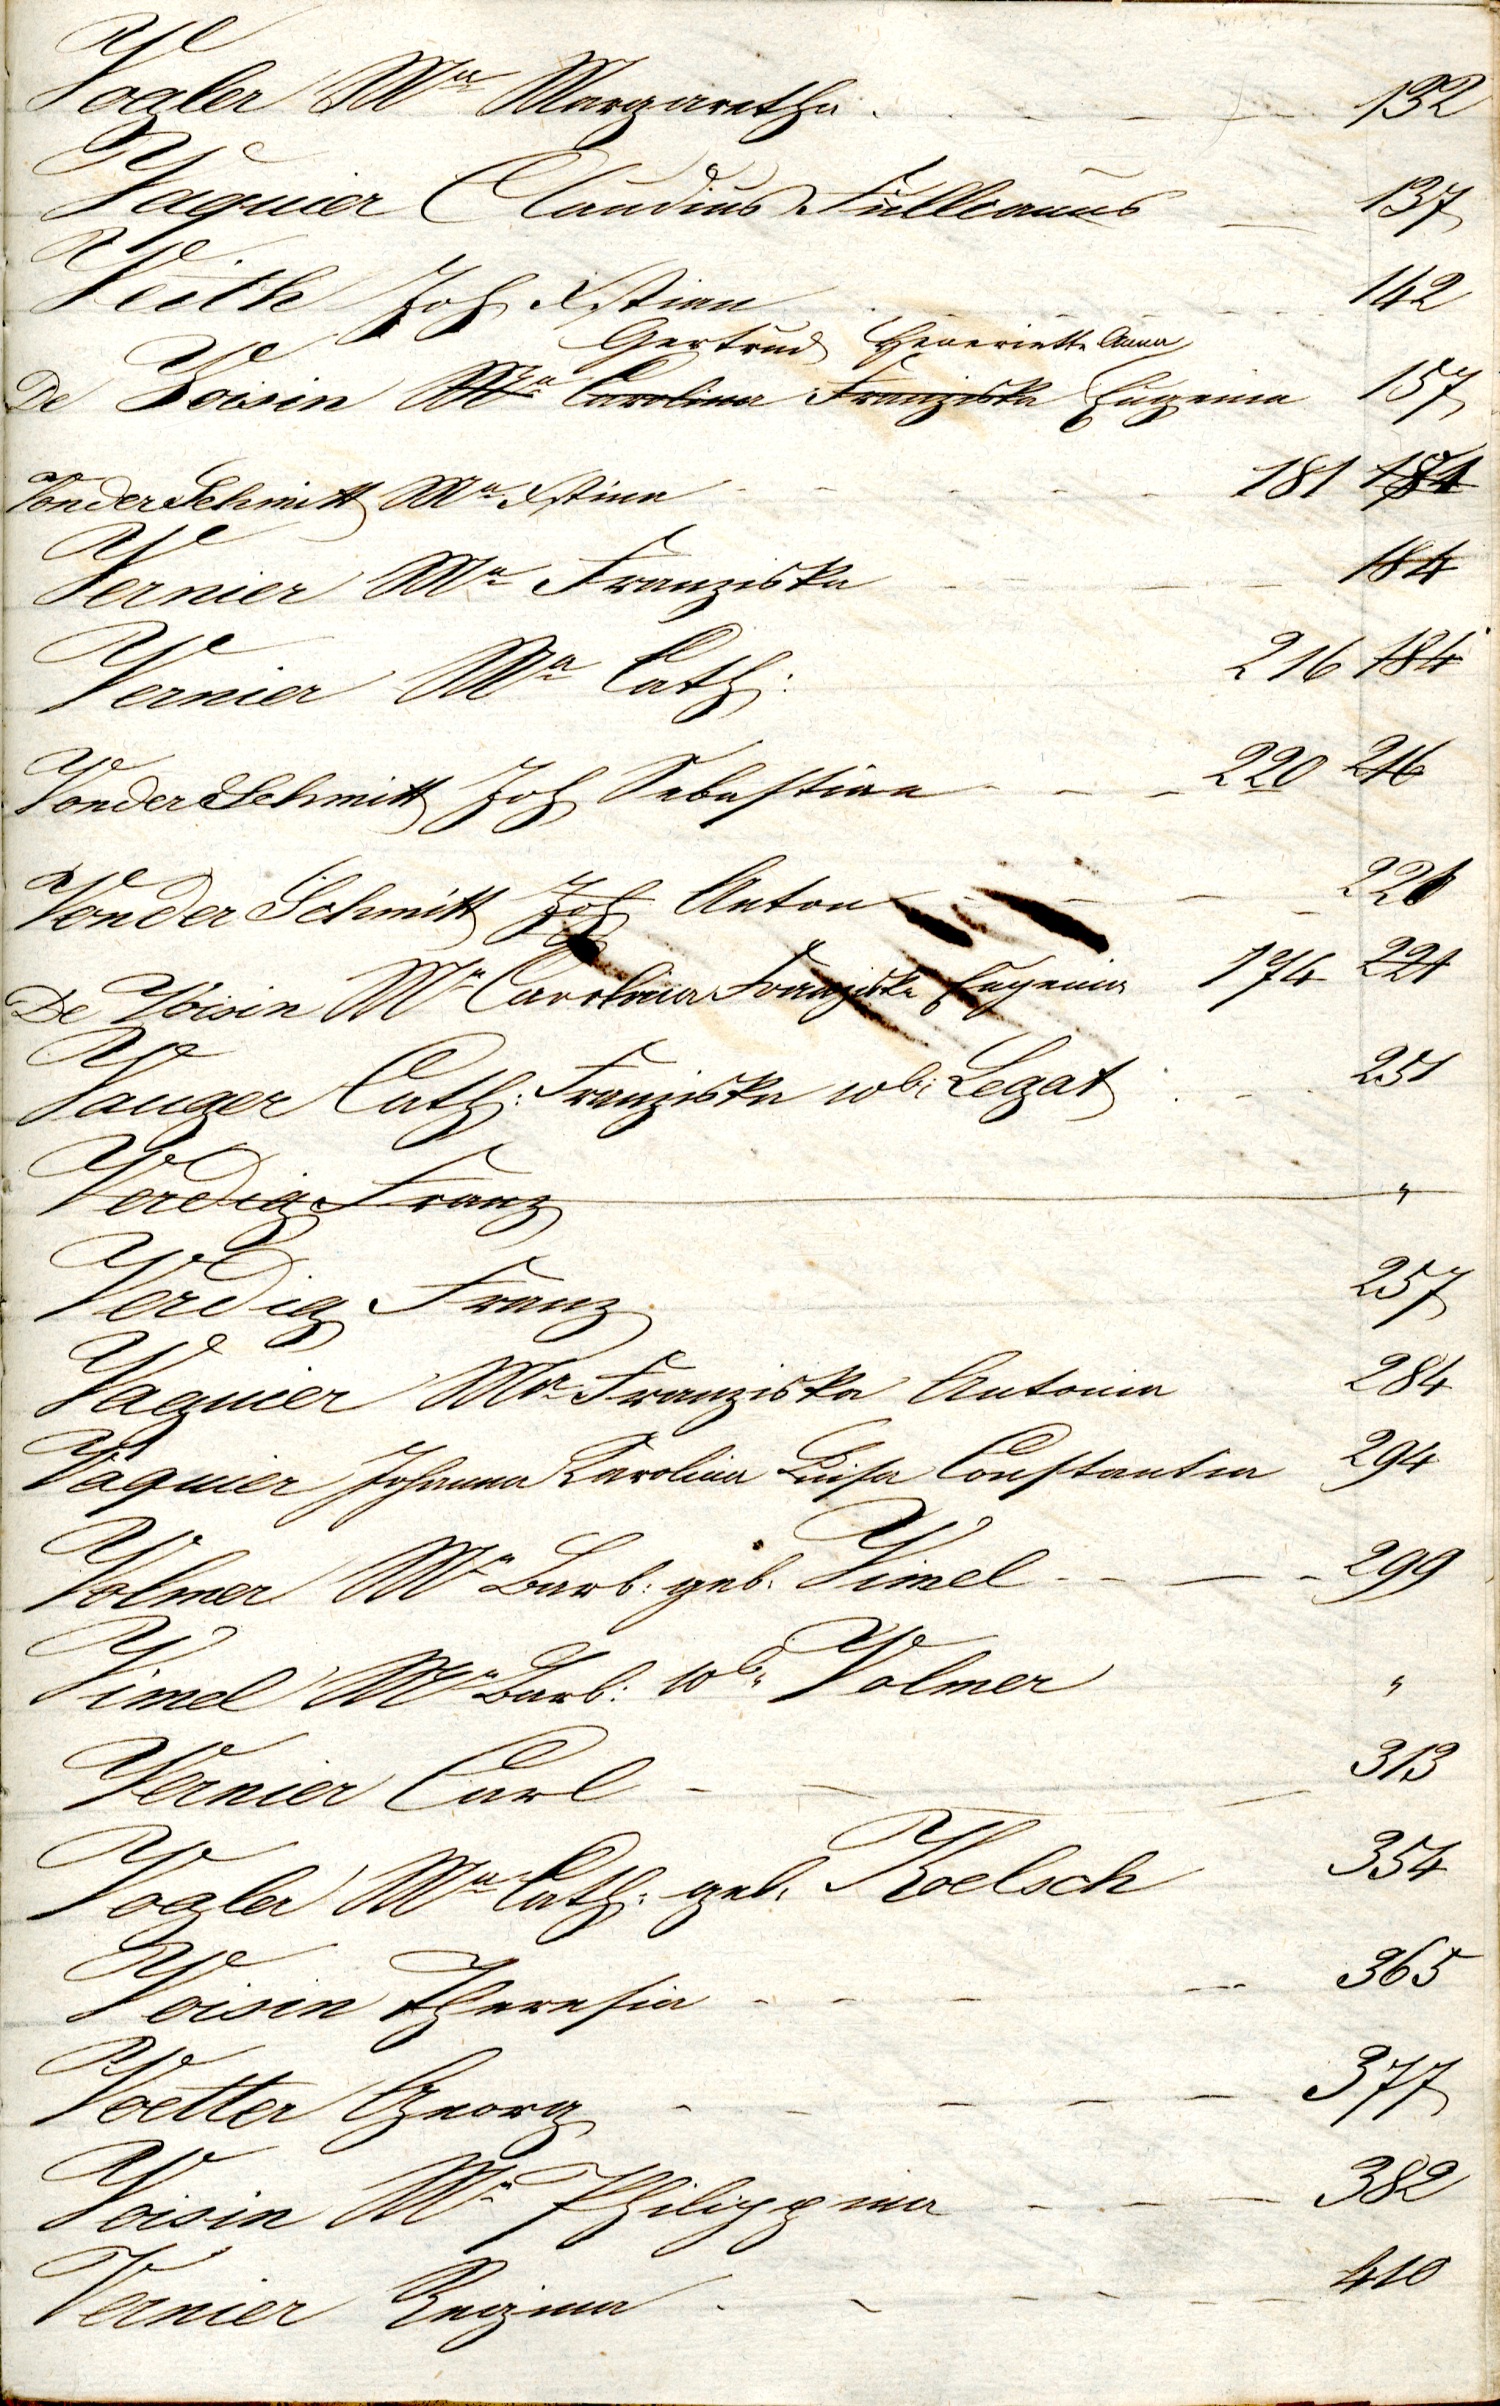 Vogler Mᵃ Margaretha . . - - - 132
Vaquier Claudius Julleanus — 137
Veith Joh Xstian . . . . 142
Gertrud Henriette Anna
De Voisin Mᵃ Carolina Franziska Eugenia 157
VonderSchmitt Mᵃ Xstina - - - - - 181 181
Vernier Mᵃ Franziska - - - - 184
Vernier Mᵃ Cath: 216 184
VonderSchmitt Joh Sebastian - - - 220 216
VonderSchmitt Joh Anton - - - - 220
De Voisin Mᵃ Carolina Franziska Eugenia 174 221
Vauger Cath: Franziska wb: Legat . - - 251
Verdig Franz "
Verdig Franz 257
Vaquier Mᵃ Franziska Antonia 284
Vaquier Johanna Karolina Luisa Constantia 294
Volmer Mᵃ Barb: geb: Vimel - - — - 299
Vimel Mᵃ Barb: wb: Volmer "
Vernier Carl - — — 313
Vogler Mᵃ Cath: geb: Koelsch 354
Voisin Theresia - - - - 365
Voetter Georg - - - - - 377
Voisin Mᵃ Philippina - - - 382
Vernier Regina . - - - - - 410